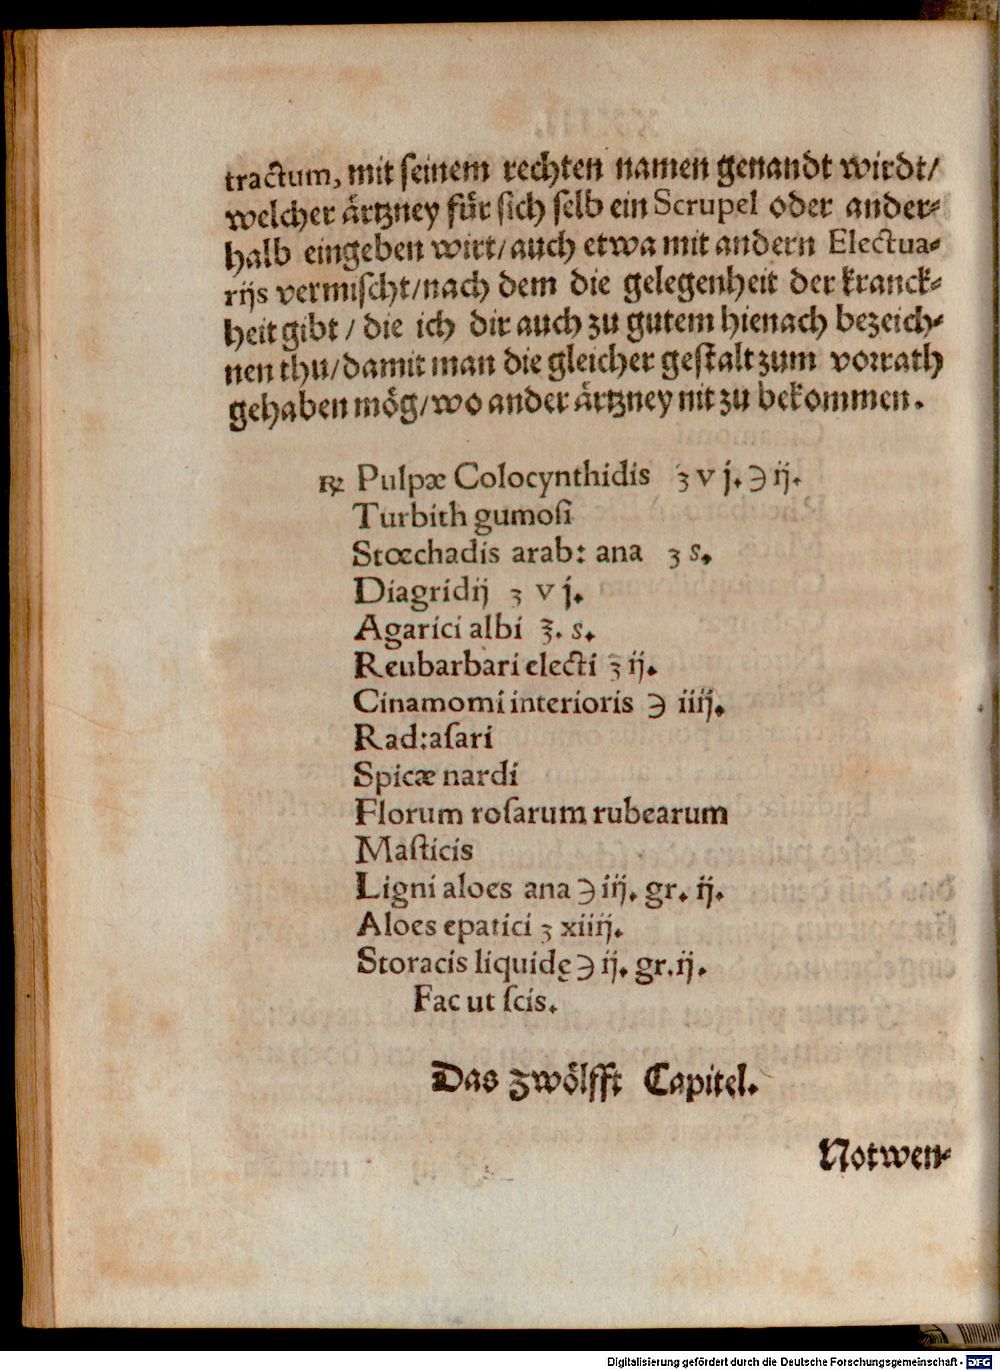 tractum, mit ſeinem rechten namen genandt wirdt/
welcher ärtzney für ſich ſelb ein Scrupel oder ander⸗
halb eingeben wirt/auch etwa mit andern Electua⸗
rijs vermiſcht/nach dem die gelegenheit der kranck⸗
heit gibt / die ich dir auch zu gutem hienach bezeich⸗
nen thu/damit man die gleicher geſtalt zum vorꝛath
gehaben mög/wo ander ärtzney nit zu bekommen.
℞ Pulpæ Colocynthidis ʒ v j. ℈ ij.
Turbith gumoſi
Stœchadis arab: ana ʒ s.
Diagridij ʒ v j.
Agarici albi ℥. s.
Reubarbari electi ʒ ij.
Cinamomi interioris ℈ iiij.
Rad:aſari
Spicæ nardi
Florum roſarum rubearum
Maſticis
Ligni aloes ana ℈ iij. gr. ij.
Aloes epatici ʒ xiiij.
Storacis liquidę ℈ ij. gr.ij.
Fac ut ſcis.
Das zwölfft Capitel.
Notwen⸗
Digitalisierung gefördert durch die Deutsche Forschungsgemeinschaft - DFG